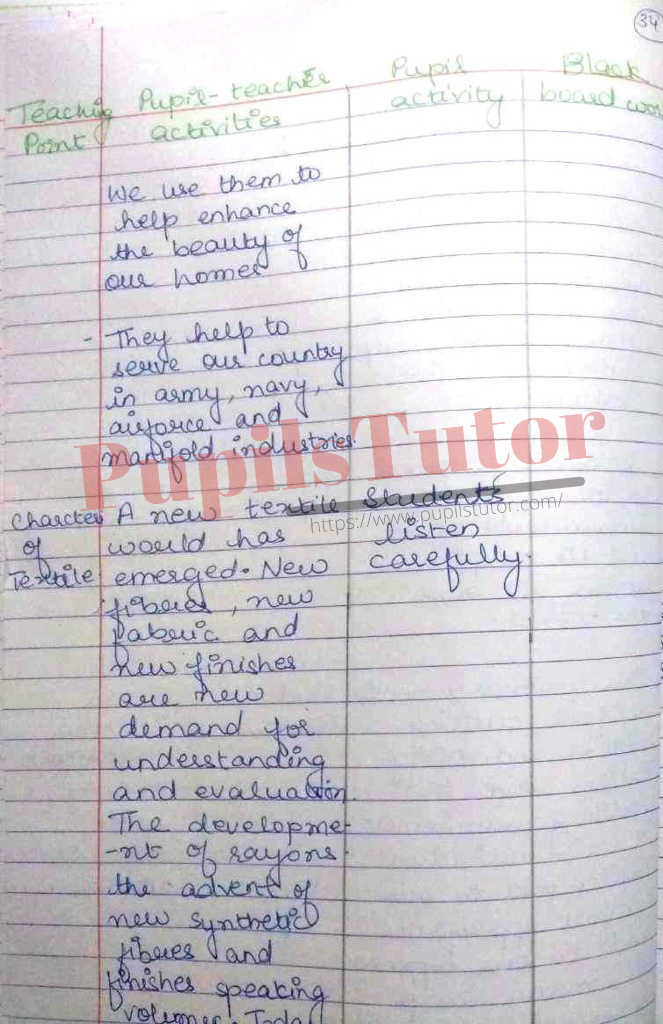 34
Teaching Point
Pupil-teacher activities
Pupil activity
Black board wor
We use them to
help enhance
the beauty of
our homes
- They help to
serve our country
in army, navy,
airforce and
manifold industries.
PupilsTutor
https://www.pupilstutor.com/
Charcter
of
Textile
A new textile
would has
emerged. New
fiberes, new
faberic and
new finishes
are new
demand for
understanding
and evaluation.
The developme-
-nt of rayons.
the advent of
new synthetic
fiberes and
finishes speaking
volumes. Today
Students
listen
carefully.